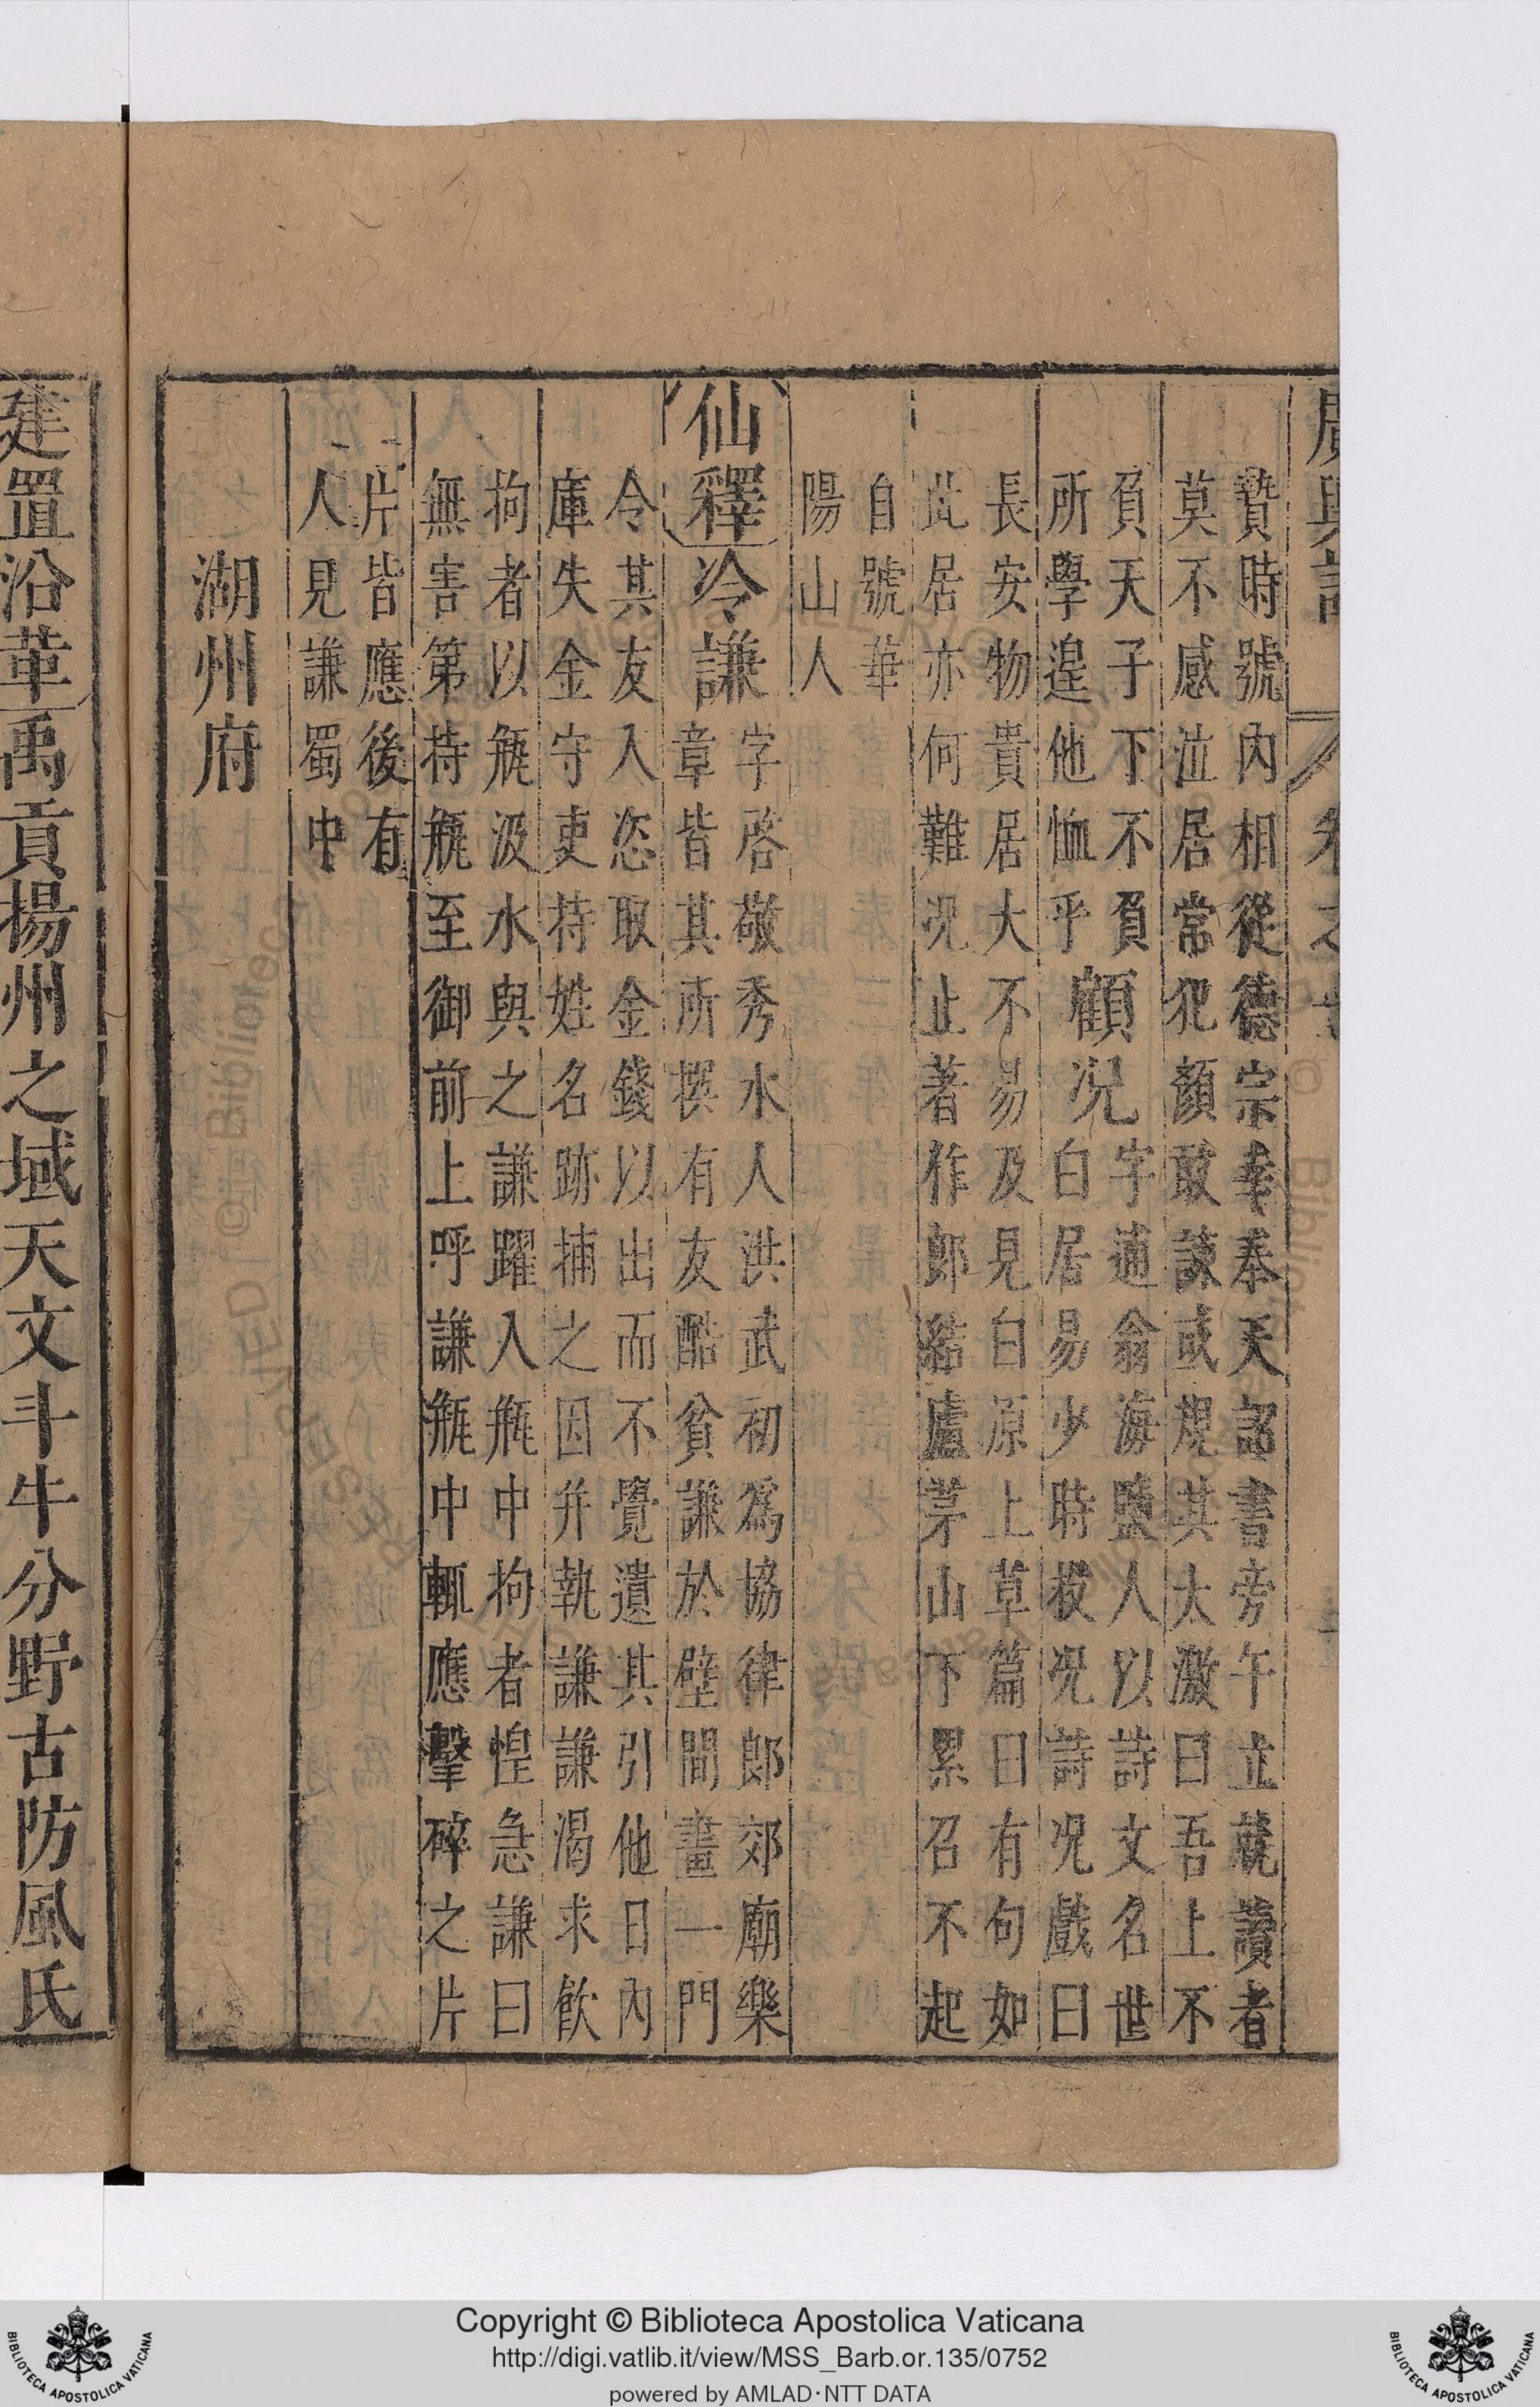 廣輿記 卷之
贊時號內相從德宗幸奉天詔書旁午立就讀者
莫不感泣居常犯顏敢諫或規其太激曰吾上不
負天子下不負
所學遑他恤乎
顧况
字逋翁海鹽人以詩文名世
白居易少時投况詩况戲曰
長安物貴居大不易及見白原上草篇曰有句如
此居亦何難况止著作郎結廬茅山下累召不起
自號華
陽山人
仙釋 冷謙
字啓敬秀水人洪武初爲協律郎郊廟樂
章皆其所撰有友酷貧謙於壁間畫一門
令其友入恣取金錢以出而不覺遺其引他日內
庫失金守吏持姓名跡捕之因并執謙謙渴求飲
拘者以瓶汲水與之謙躍入瓶中拘者惶急謙曰
無害第持瓶至御前上呼謙瓶中輒應擊碎之片
片皆應後有
人見謙蜀中
湖州府
建置沿革禹貢揚州之域天文斗牛分野古防風氏
Copyright © Biblioteca Apostolica Vaticana
http://digi.vatlib.it/view/MSS_Barb.or.135/0752
powered by AMLAD·NTT DATA
BIBLIOTECA APOSTOLICA VATICANA
BIBLIOTECA APOSTOLICA VATICANA